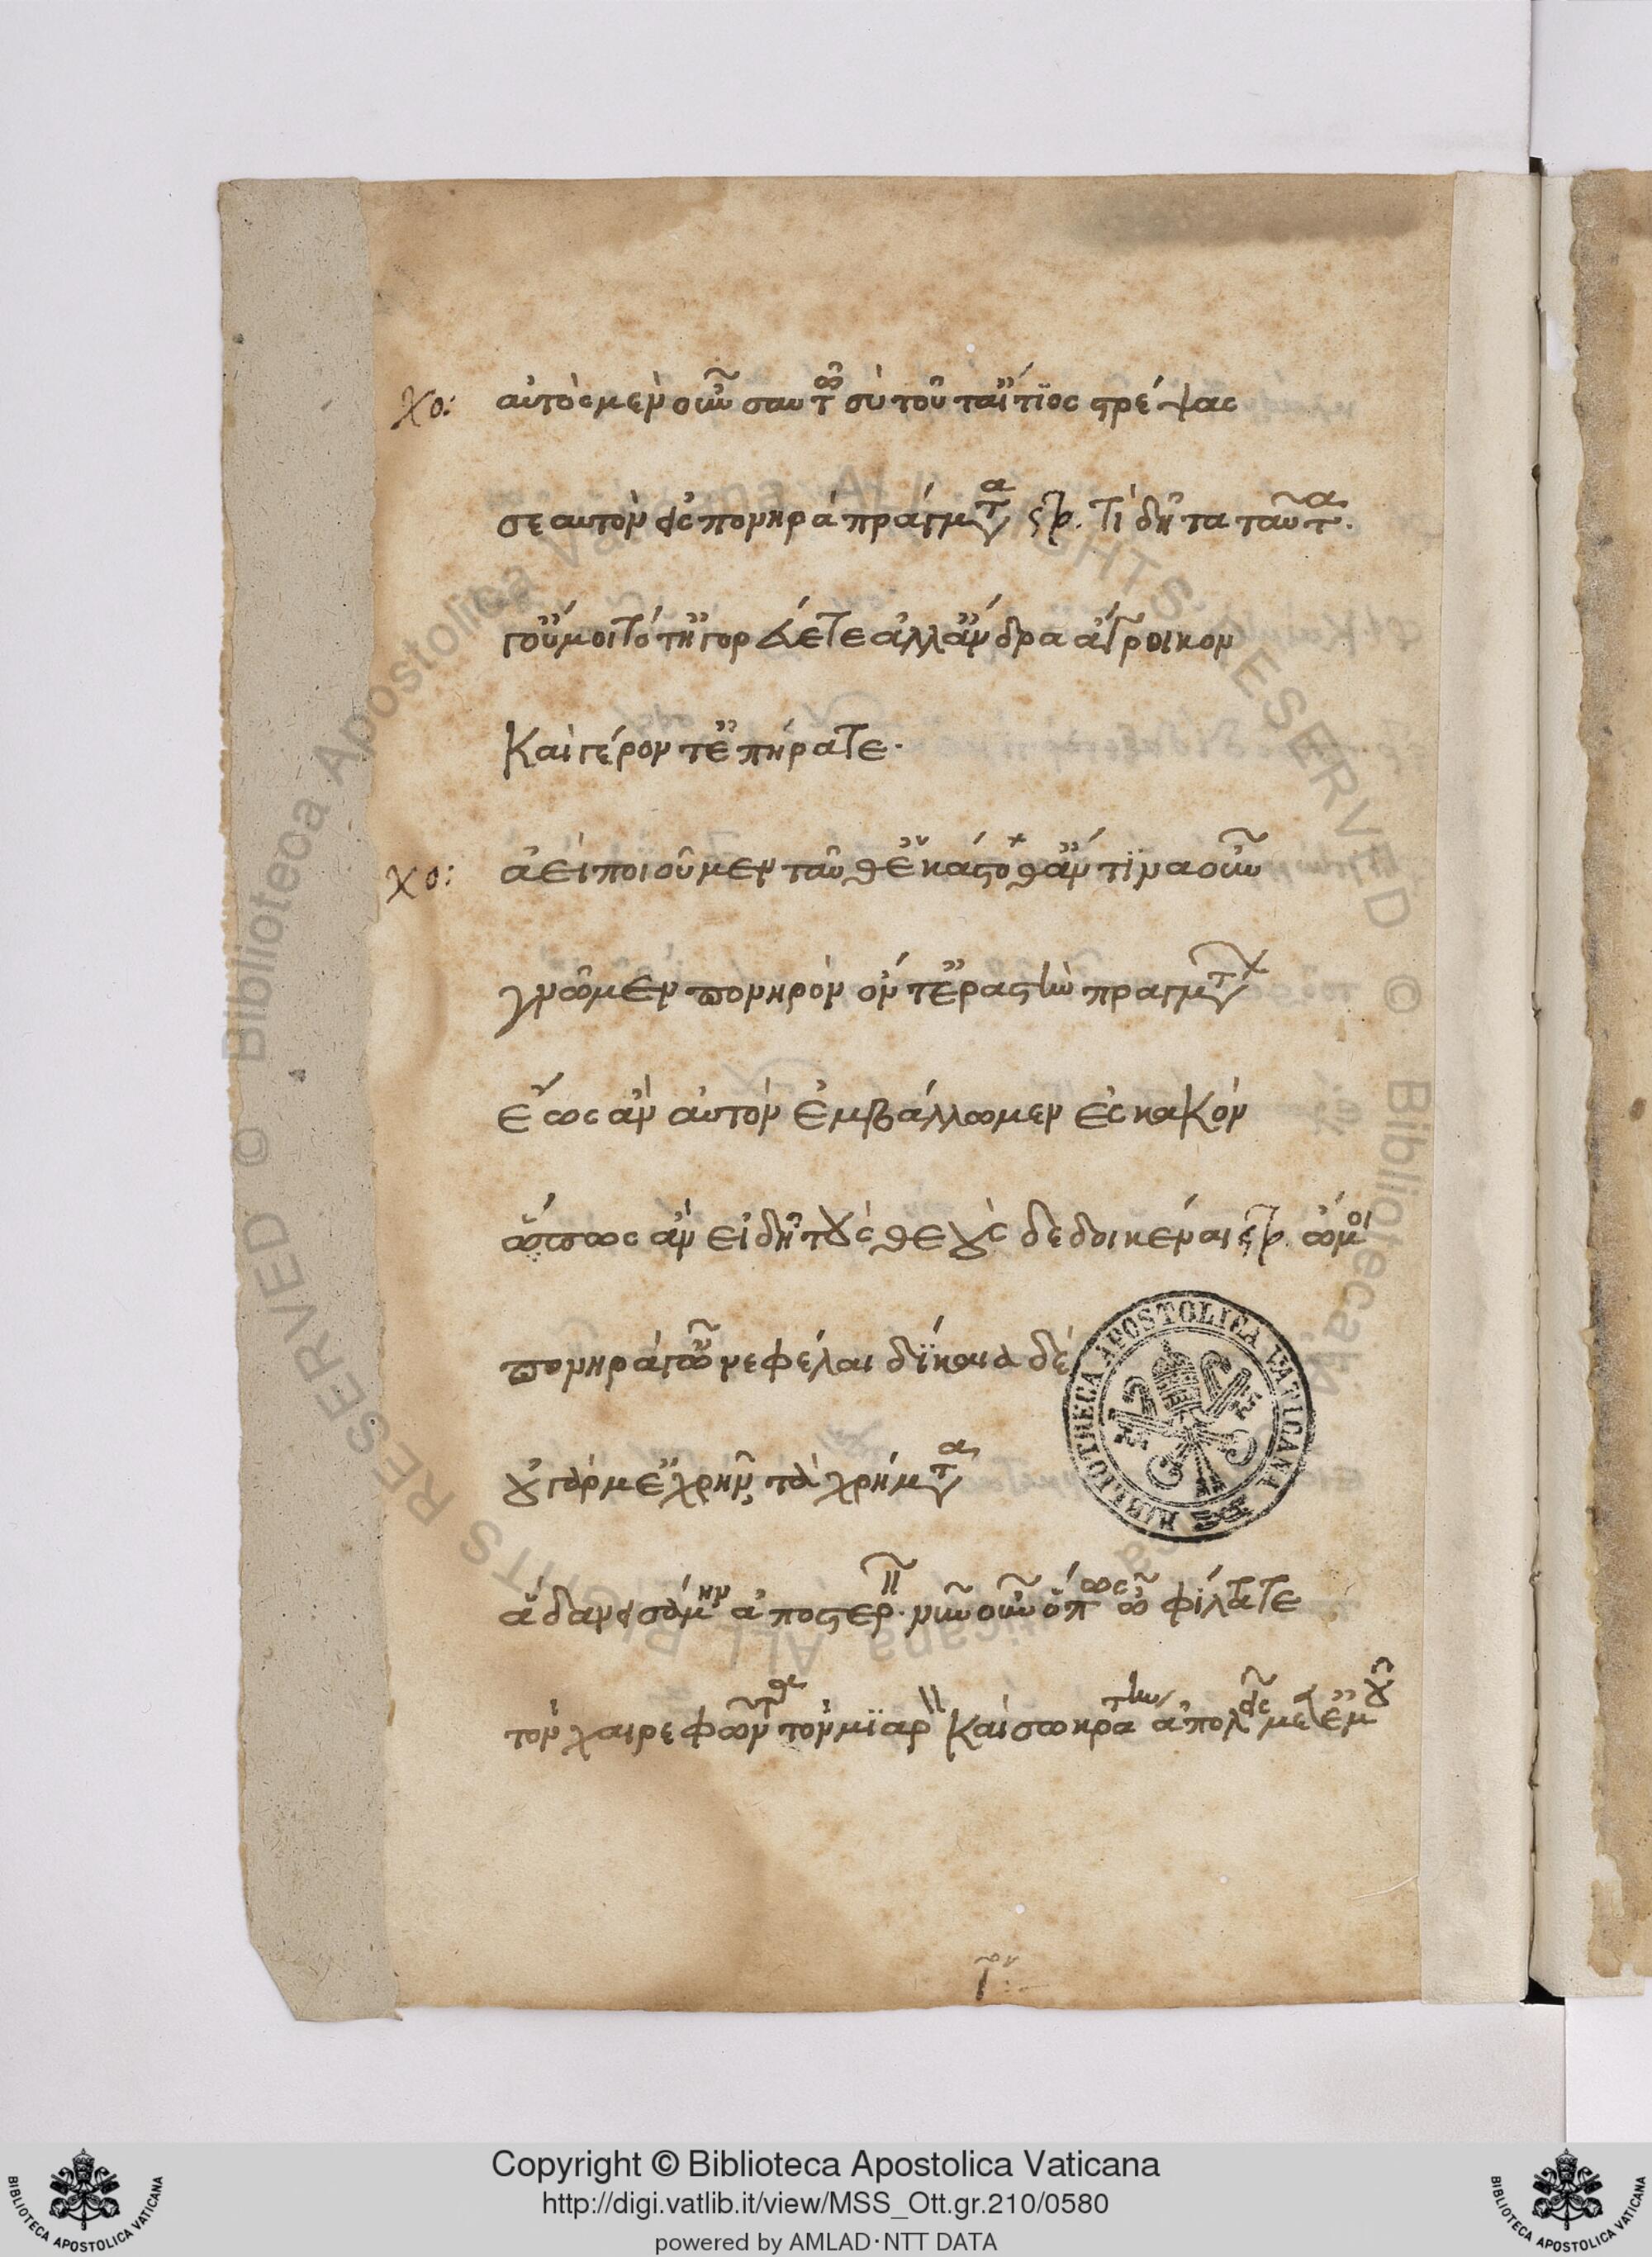 χο: αὐτὸς μὲν οὖν σαυτῶ σὺ τούτ αἴτιος στρέψας
σεαυτὸν εἰς πονηρὰ πράγματα στρ. τί δῆτα ταῦτα.
γοὔμοι τότ ἠγορεύετε ἀλλ ἄνδρα ἄγροικον
καὶ γέροντ ἐπήρατε.
χο: ἀεὶ ποιοῦμεν ταῦθ ἑκάστοθ ἄν τινα οὖν
γνῶμεν πονηρὸν ὄντ ἐραστὴν πραγμάτων
ἕως ἂν αὐτὸν ἐμβάλλωμεν ἐς κακὸν
ὅπως ἂν εἰδῆ τοὺς θεοὺς δεδοικέναι στρ. ὤμοι
πονηρά γ ὦ νεφέλαι δίκαια δέ
οὐ γάρ μ ἐχρῆν τὰ χρήματα
ἃ δανεισάμην ἀποστερεῖν. νῦν οὖν ὅπως ὦ φίλτατε
τὸν χαιρεφῶντα τὸν μιαρὸν καὶ σωκράτην ἀπολεῖς μετ ἐμοῦ
Copyright © Biblioteca Apostolica Vaticana
http://digi.vatlib.it/view/MSS_Ott.gr.210/0580
powered by AMLAD·NTT DATA
BIBLIOTHECA APOSTOLICA VATICANA